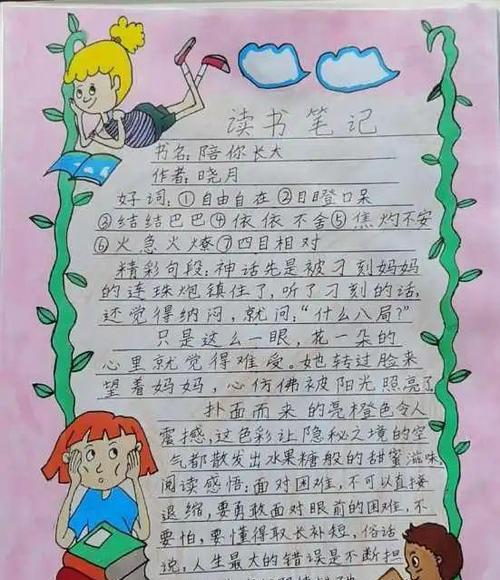 读书笔记
书名：陪你长大
作者：晓月
好词：①自由自在②目瞪口呆
③结结巴巴④依依不舍⑤焦灼不安
⑥火急火燎⑦四目相对
精彩句段：神话先是被刁刻妈妈
的连珠炮镇住了，听了刁刻的话，
还觉得纳闷，就问：“什么八局？”
只是这么一眼，花一朵的
心里就觉得难受。她转过脸来
望着妈妈，心仿佛被阳光照亮了
扑面而来的亮橙色令人
震撼，这色彩让隐秘之境的空
气都散发出水果糖般的甜蜜滋味，
阅读感悟：面对困难，不可以直接
退缩，要勇敢面对眼前的困难，不
要怕，要懂得取长补短，俗话
说，人生最大的错误是不断担